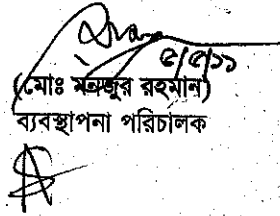 ৫/৫/১১
(মোঃ মনজুর রহমান)
ব্যবস্থাপনা পরিচালক